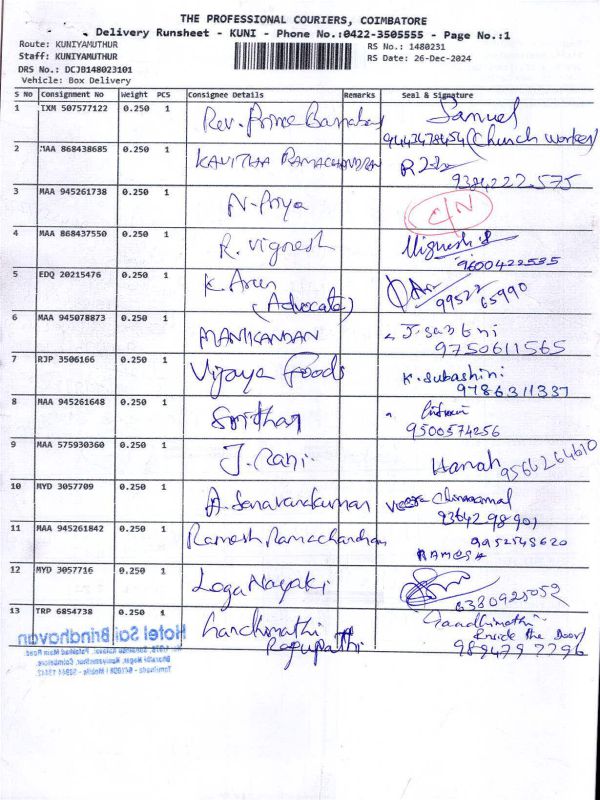 THE PROFESSIONAL COURIERS, COIMBATORE
Delivery Runsheet - KUNI - Phone No.:0422-3505555 - Page No.:1
Route: KUNIYAMUTHUR
RS No.: 1480231
Staff: KUNIYAMUTHUR
RS Date: 26-Dec-2024
DRS No.: DCJB148023101
Vehicle: Box Delivery
S No Consignment No Weight PCS Consignee Details Remarks Seal & Signature
1 IXM 507577122 0.250 1 Rev. Prince Barnabas Samuel
(Church worker)
2 MAA 868438685 0.250 1 KAVITHA RAMACHANDRAN
9384222575
3 MAA 945261738 0.250 1 N. Priya
4 MAA 868437550 0.250 1 R. Vignesh Vignesh
9600422535
5 EDQ 20215476 0.250 1 K. Arun
(Advocate) 99522 65990
6 MAA 945078873 0.250 1 MANIKANDAN
9750611565
7 RJP 3506166 0.250 1 Vijaya Foods K. Subashini
9786311337
8 MAA 945261648 0.250 1 Sridhar
9500574256
9 MAA 575930360 0.250 1 J. Rani Hanah 9566264610
10 MYD 3057709 0.250 1 A. Saravanakumar
9364298901
11 MAA 945261842 0.250 1 Ramesh Ramachandran 9952545620
RAMESH
12 MYD 3057716 0.250 1 Loga Nayaki
6380925052
13 TRP 6854738 0.250 1 Gandhimathi Gandhimathi
Ragupathi Inside the Door
9894797796
Hotel Sai Brindhavan